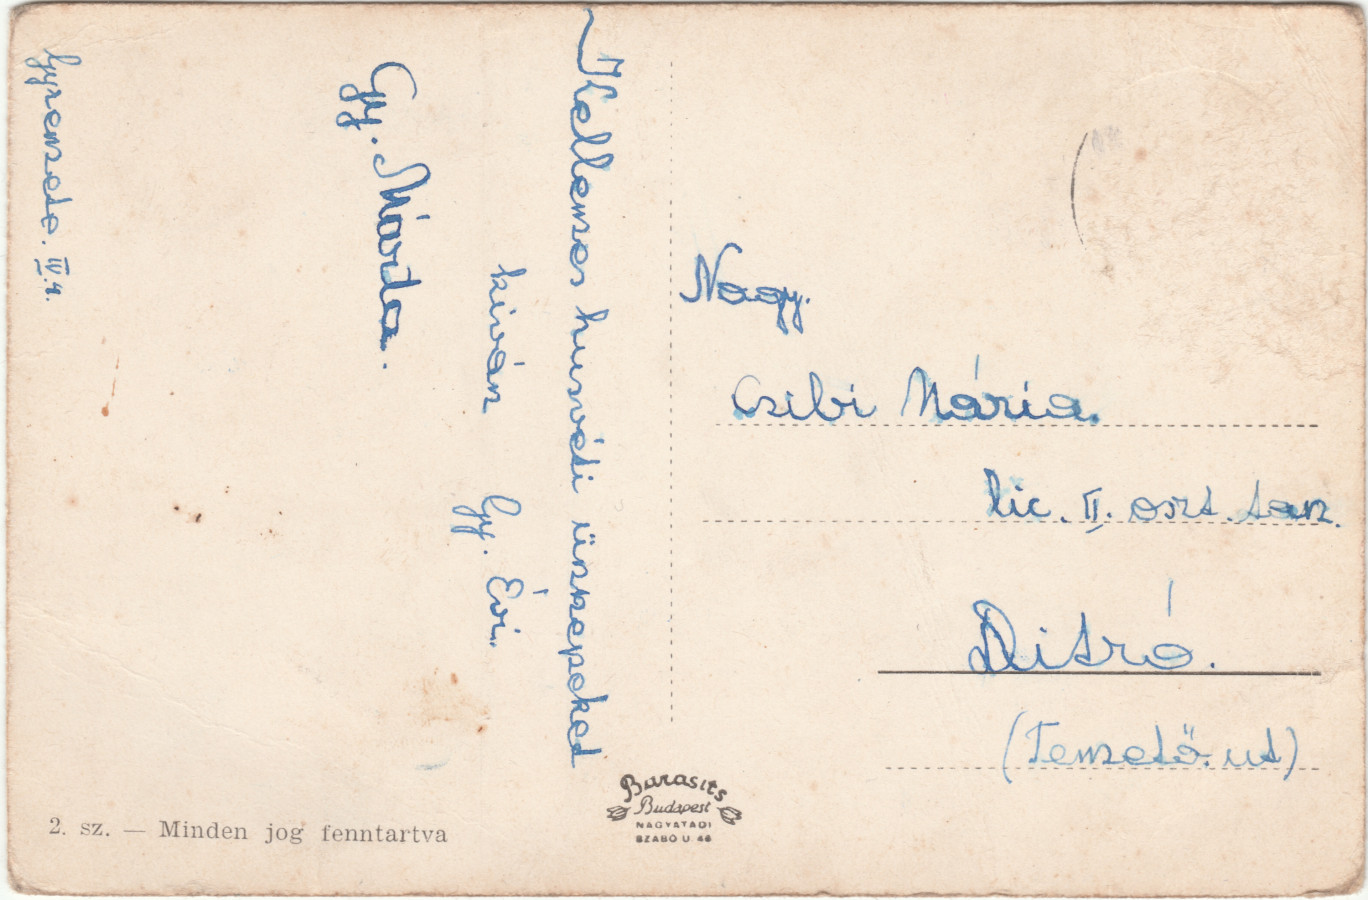 Kellemes husvéti ünnepeket
kiván Gy. Évi.
Gy. Márta.
IV.4.
Nagy.
Csibi Mária.
lic. II. oszt. tan.
Ditró.
(Temető. ut)
2. sz. — Minden jog fenntartva
Barasits
Budapest
NAGYATÁDI
SZABÓ U. 46